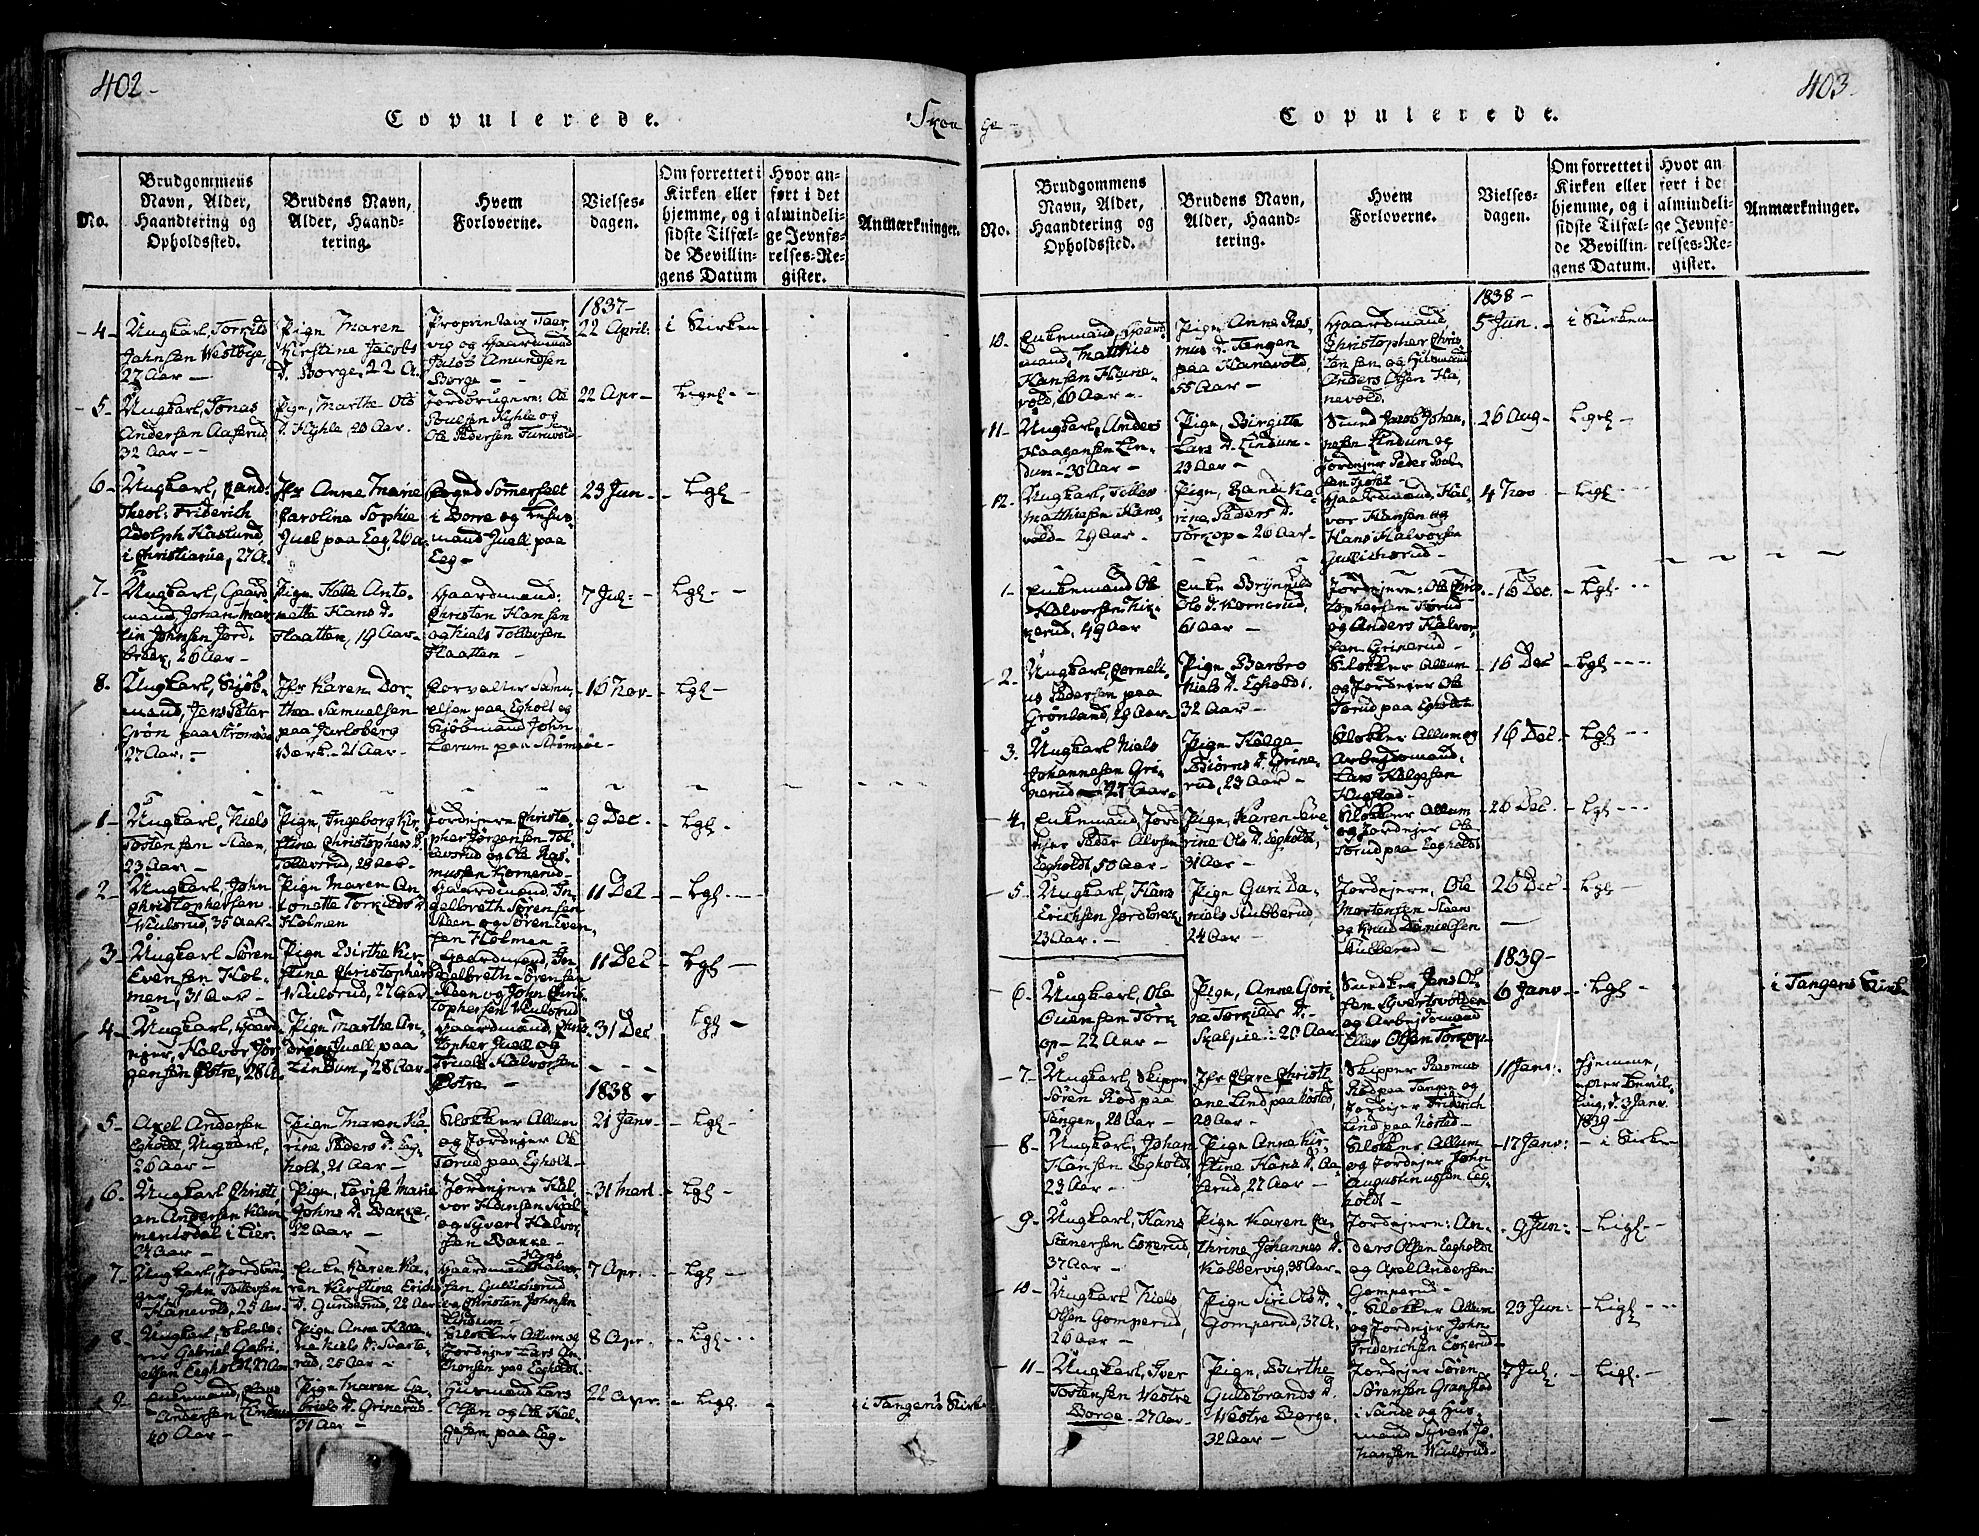 402-
Copulerede.
Skou
No.
Brudgommens Navn, Alder, Haandtering og Opholdssted.
Brudens Navn, Alder, Haandtering.
Hvem Forloverne.
Vielsesdagen.
Om forrettet i Kirken eller hjemme, og i sidste Tilfælde Bevillingens Datum
Hvor anført i det almindelige Jevnførelses-Register.
Anmærkninger.
1837-
4-
Ungkarl,
Johnsen Westbye,
27 Aar -
Pige Maren
Kirstine Jacobs
D. Borge, 22 A.
Proprietair
vig og Gaardmand
Jacob Amundsen
Borge -
22 April:
i Kirken
5-
Ungkarl, Jonas
Andersen Aaserud
32 Aar -
Pige, Marthe Ols
D. Hyhle, 20 Aar.
Jordbrugere: Ole
Poulsen Hyhle og
Ole Pedersen
22 Apr-
Ligel -
6-
Ungkarl, Cand:
Theol: Friderich
Adolph Haslund,
i Christiania, 27 A.
Jfr Anne Marie
Caroline Sophie
Juel paa Eeg, 20 A
Sommerfelt
i Borre og
mand Juell paa
Eeg-
23 Jun-
Lgl -
7-
Ungkarl, Gaard
mand, Johan Mar
tin Johnsen Jord.
bræk, 26 Aar -
Pige Anto-
nette Hans D.
Haatten, 19 Aar -
Gaardmænd:
Christen Hansen
og Niels Tollefsen
Haatten -
7 Jul -
Lgl -
8.
Ungkarl, Kjøb-
mand, Jens Peter
Grøn paa Strømsøe
27 Aar. -
Jfr Karen Dor-
thea Samuelsen
paa Jarlsberg
Værk - 21 Aar -
Forvalter Samu
elsen paa Egholt og
Kjøbmand John
Lærum paa Strømsøe -
16 Nov -
Lgl -
1-
Ungkarl, Niels
Tostensen Steen,
23 Aar -
Pige, Ingeborg Kir-
stine Christophers D.
Tollevsrud, 28 Aar -
Jordejere Christo-
pher Jørgensen Tol-
levsrud og Ole Ras-
mussen Hornerud -
9 Dec.
Lgl -
2-
Ungkarl, John
Christophersen
Wiulsrud, 35 Aar -
Pige Maren An-
tonette Torkilds D.
Holmen
Gaardmænd, In
gelbreth Sørensen
Steen og Søren Even,
sen Holmen -
11 Dec
Lgl -
3-
Ungkarl Søren
Evensen Hol-
men, 31 Aar -
Pige Birthe Kir-
stine Christophers D.
Wiulsrud, 27 Aar
Gaardmænd, In
gelbreth Sørensen
Steen og John Chris
tophersen Wiulsrud
11 Dec
Lgl -
4-
Ungkarl, Gaard
ejer, Halvor Jør
gensen Østre, 28 A.
Pige Marthe An-
drine Juell paa
Lindum, 28 Aar -
Gaardmænd, Chris
topher Juell og
Truels Halvorsen
Østre -
31 Dec
Lgl -
1838 -
5-
Axel Andersen
Egholdt, Ungkarl,
26 Aar -
Pige Maren Ka-
rine Peders D. Eg-
holt, 21 Aar -
Klokker Allum
og Jordejer Ole
Torud paa Egholt -
21 Janv -
Lgl -
6-
Ungkarl, Christi
an Andersen
mentsdal i Lier
Aar -
Pige, Lovise Marie
Johns D. Bakke,
22 Aar -
Jordejere Hal-
vor Hansen
og Syvert Halvor
sen Bakke -
31 Mart
Lgl -
7-
Ungkarl, Jordbru-
ger, John Tollefsen
Hanevold, 25 Aar -
Enke Karen Ka-
ren Kirstine Erich
D. Gunderud, 28 Aar
Gaardmænd Hans Halvor
sen Gullichsrud
og Christen Johnsen
Lindum -
7 Apr.
Lgl -
8.
Ungkarl, Skolelæ:
rer Gabriel Gabri
elsen Eegholdt, 27 Aar
Pige Anne Hele-
ne Niels D.
rud, 25 Aar -
Klokker Allum og
Jordejer Lars
paa Egholdt.
8 Apr.
Lgl -
9-
Enkemand,
Andersen Lindum
40 Aar -
Pige Maren Ga-
briels D. Grinerud
31 Aar -
Huusmand Lars
Olsen og Ole Hal-
gesen paa Eeg-
22 Apr.
Ligl -
i Tangens Kirke
403-
ge -
Copulerede.
No.
Brudgommens Navn, Alder, Haandtering og Opholdssted.
Brudens Navn, Alder, Haandtering.
Hvem Forloverne.
Vielsesdagen.
Om forrettet i Kirken eller hjemme, og i sidste Tilfælde Bevillingens Datum.
Hvor anført i det almindelige Jevnførelses-Register.
Anmærkninger.
1838 -
10.
Enkemand, Gaard
mand, Matthis
Hansen Hane-
vold, 60 Aar -
Pige Anne Ras-
mus D. Tangen
paa Hanevold,
55 Aar -
Gaardmand
Christopher Chris
tensen og Huusmand
Anders Olsen Ha
nevold.
5 Jun. -
i Kirken
11-
Ungkarl, Anders
Haagensen Lin-
dum - 30 Aar -
Pige, Birgitte
Lars D. Lindum -
23 Aar -
Jacob Johan,
nesen Lindum og
Jordejer Peder Pal-
26 Aug -
Lgl -
12-
Ungkarl, Tollev
Matthisen Hane-
vold - 29 Aar -
Pige, Randi Ka
rine, Peders D.
Torkop - 26 Aar -
Gaardmænd, Hal
vor Hansen og
Hans Halvorsen
Gullichsrud -
4 Nov
Ligl -
1-
Enkemand Ole
Halvorsen Kir-
kerud, 49 Aar
Enke Brynnild
Ols D. Hornerud,
61 Aar -
Jordejere: Ole Chris
tophersen Torud
og Anders Halvor
sen Grinerud -
16 Dec.
Lgl -
2-
Ungkarl, Corneli
us Pedersen paa
Grønland, 29 Aar -
Pige Barbro
Niels D. Egholdt.
32 Aar -
Klokker Allum
og Jordejer Ole
Torud paa Egholdt
16 Dec
Lgl -
3.
Ungkarl Niels
Johannesen Gri-
nerud - 27 Aar -
Pige Helge
Biørns D. Grine-
rud, 23 Aar -
Klokker Allum og
Arbejdsmand,
Lars Helgesen
Hugstad -
16 Dec -
Lgl -
4.
Enkemand, Jord
ejer Peder Alvsen
Egholdt, 50 Aar -
Pige, Karen Eve
rine Ols D. Egholdt,
31 Aar -
Klokker Allum
og Jordejer Ole
Torud paa Egholdt
26 Dec.
Lgl -
5-
Ungkarl, Hans
Erichsen Jordbrek,
23 Aar. -
Pige Guri Da-
niels Stubberud,
24 Aar -
Jordejere, Ole
Mortensen Steen
og Knud Danielsen
Stubberud -
26 Dec
Lgl -
1839 -
6-
Ungkarl, Ole
Ouensen Tork
op - 22 Aar -
Pige, Anne Gori-
ne Torkilds D.
Skalstie: 20 Aar -
Jens Ol-
sen Syvertsvolden
og Arbejdsmand
Eller Olsen Torkop
6 Janv
Lgl -
i Tangens Kirk
-7-
Ungkarl, Skipper
Søren Rød paa
Tangen, 28 Aar -
Jfr Clare Christi
ane Lind paa Kosted,
20 Aar -
Skipper Rasmus
Rød paa Tangen og
Jordejer Friderich
Lind paa Kosted -
11 Janv:
Hjemme,
efter Bevil
ling, d. 3 Janv
1839 -
8-
Ungkarl, Johan
Hansen Egholdt,
23 Aar -
Pige Anne Kir-
stine Hans D. Aa-
serud, 27 Aar -
Klokker Allum
og Jordejer John
Augustinussen Eeg-
holdt -
17 Janv:
- i Kirke
9-
Ungkarl, Hans
Stenersen Eskerud,
37 Aar -
Pige Karen Ca-
thrine Johannes D.
Kobbervig, 38 Aar -
Jordejere: An-
ders Olsen Egholdt
og Axel Andersen
Gomperud -
9 Jun:
Ligl -
10-
Ungkarl Niels
Olsen Gomperud,
26 Aar -
Pige Siri Ols D.
Gomperud, 37 A.
Klokker Allum
og Jordejer John
Friderichsen Eskerud -
23 Jun:
Ligl -
11-
Ungkarl, Iver
Tostensen Westre
Borge - 27 Aar -
Pige, Birthe
Guldbrands D.
Westre Borge,
32 Aar -
Jordejer Søren
Sørensen Granstad
i Sande og Huus
mand Syvert Jo
hansen Wiulsrud -
7 Jul.
Ligl -